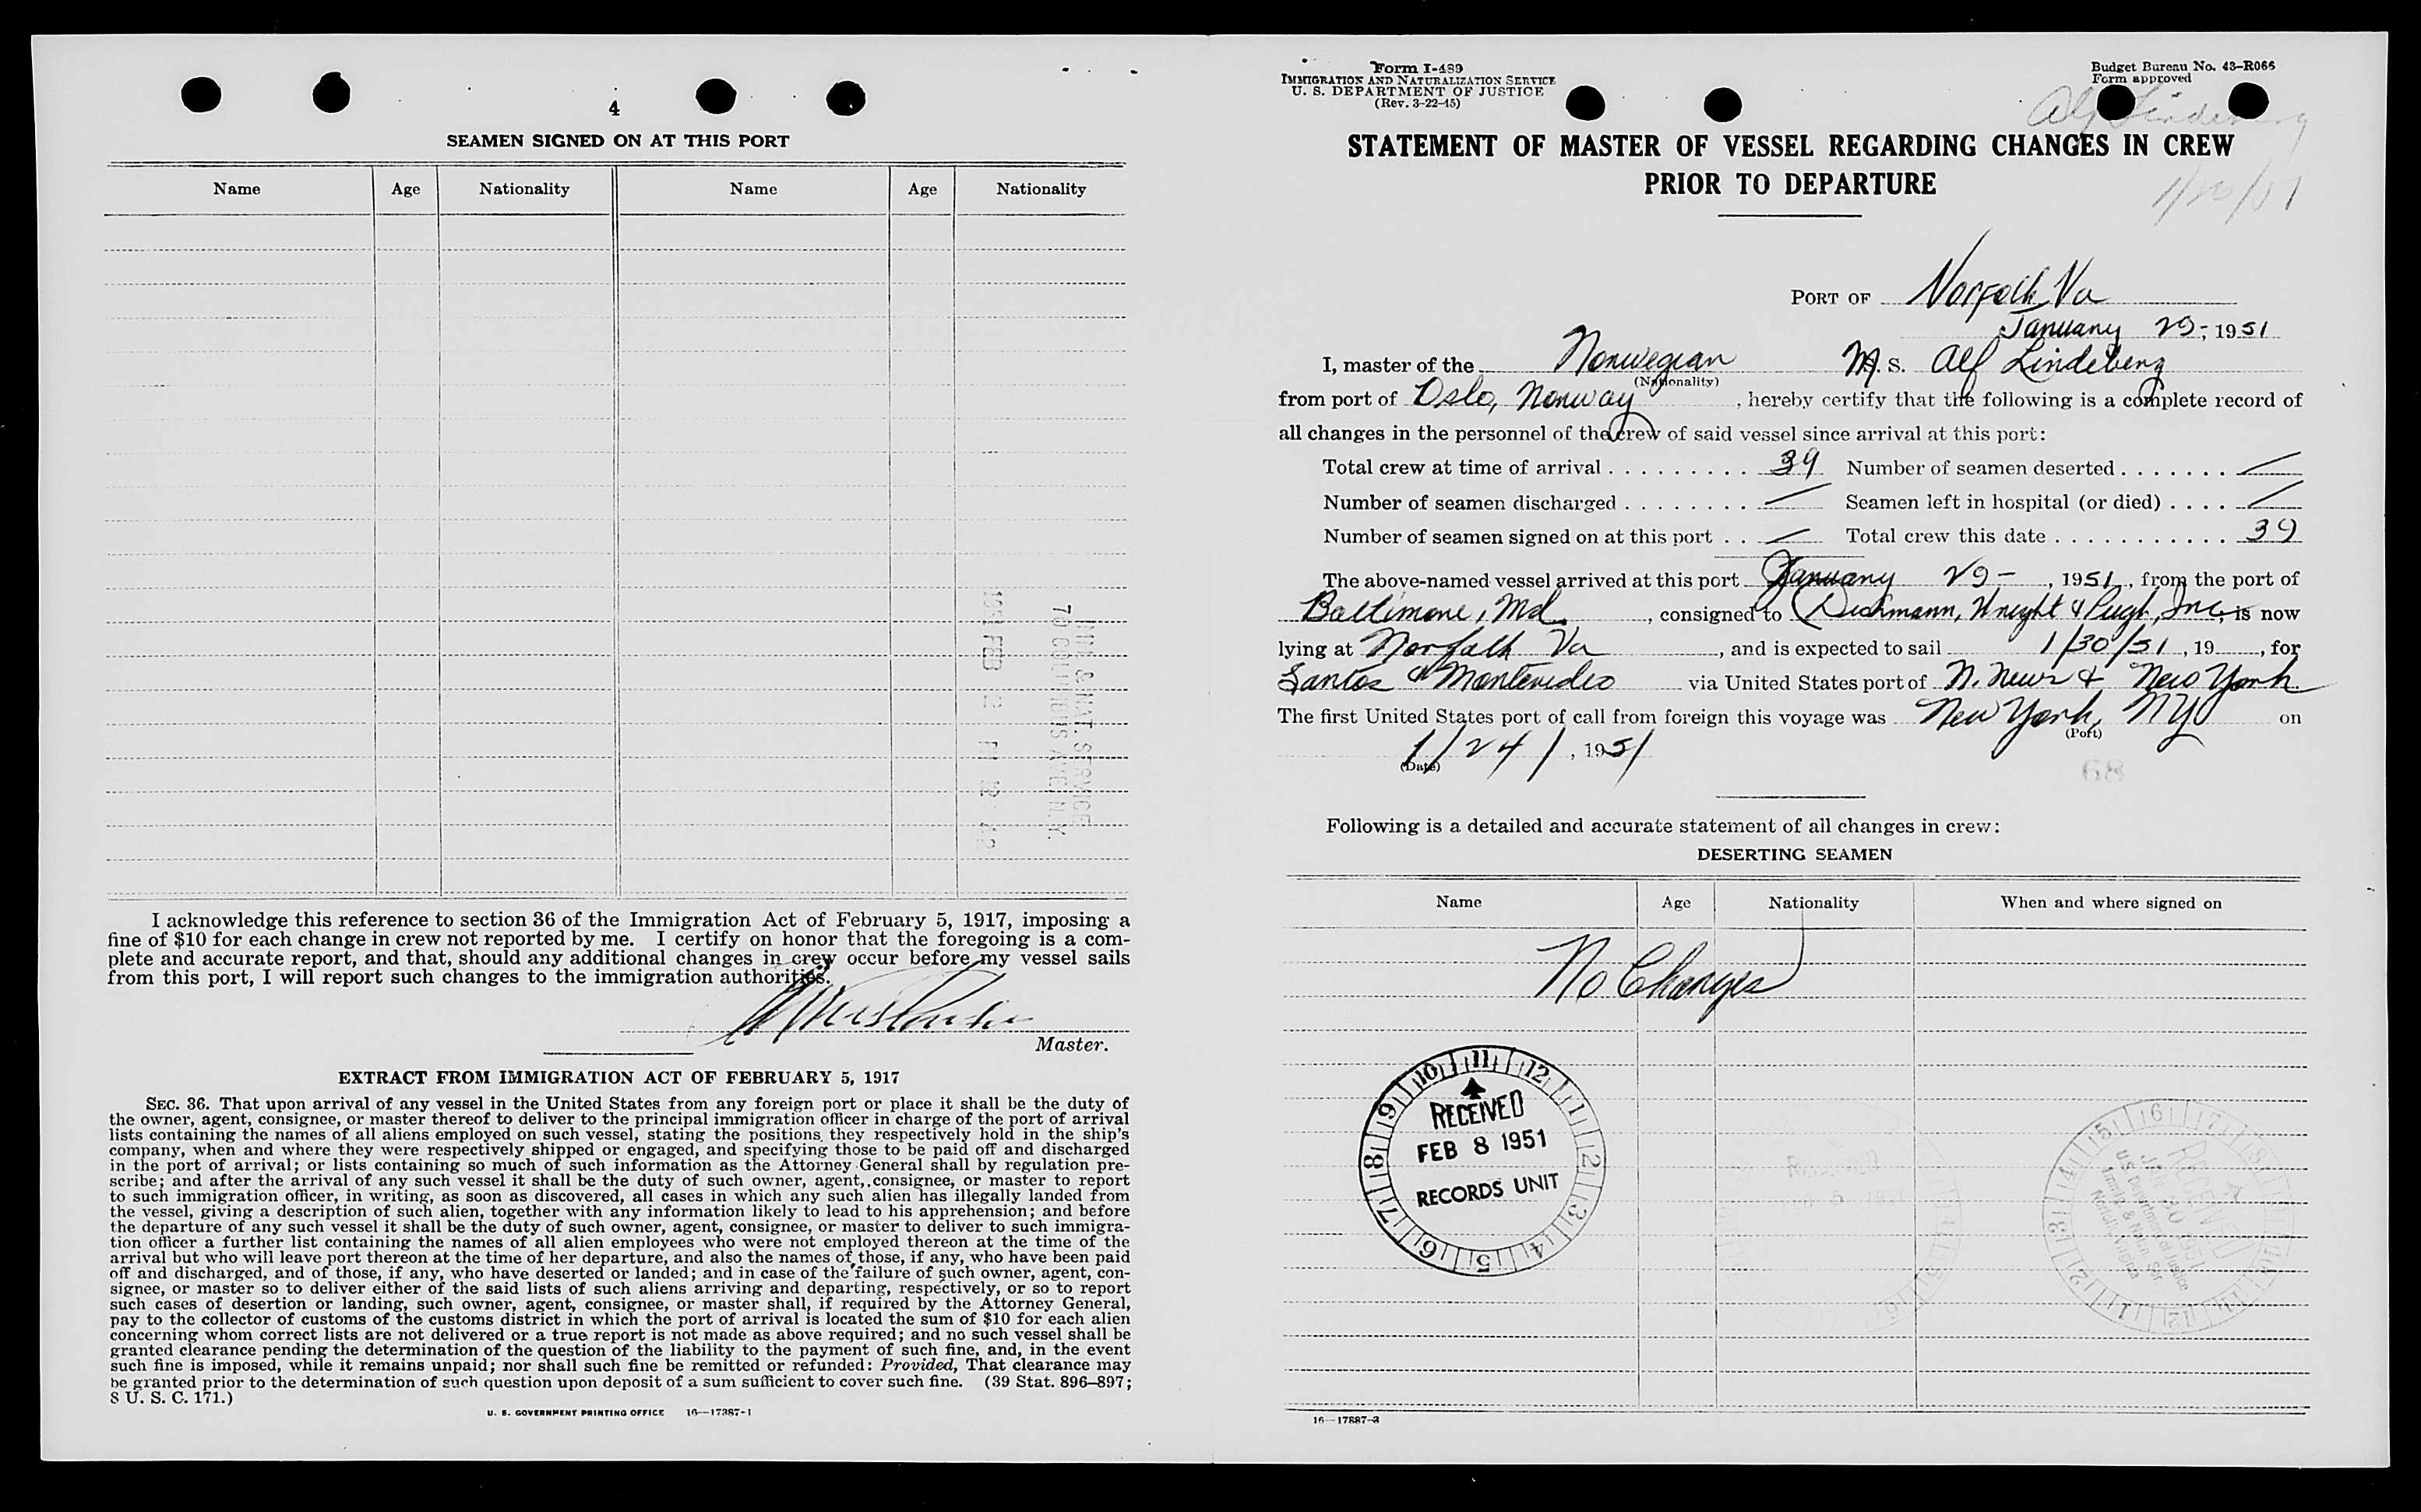 4
SEAMEN SIGNED ON AT THIS PORT
Name Age Nationality Name Age Nationality
IMM. & NAT. SERVICE
70 COLUMBUS AVE N.Y.
1951 FEB 2 PM 12 42
I acknowledge this reference to section 36 of the Immigration Act of February 5, 1917, imposing a
fine of $10 for each change in crew not reported by me. I certify on honor that the foregoing is a com-
plete and accurate report, and that, should any additional changes in crew occur before my vessel sails
from this port, I will report such changes to the immigration authorities.
Master.
EXTRACT FROM IMMIGRATION ACT OF FEBRUARY 5, 1917
SEC. 36. That upon arrival of any vessel in the United States from any foreign port or place it shall be the duty of
the owner, agent, consignee, or master thereof to deliver to the principal immigration officer in charge of the port of arrival
lists containing the names of all aliens employed on such vessel, stating the positions they respectively hold in the ship's
company, when and where they were respectively shipped or engaged, and specifying those to be paid off and discharged
in the port of arrival; or lists containing so much of such information as the Attorney General shall by regulation pre-
scribe; and after the arrival of any such vessel it shall be the duty of such owner, agent, consignee, or master to report
to such immigration officer, in writing, as soon as discovered, all cases in which any such alien has illegally landed from
the vessel, giving a description of such alien, together with any information likely to lead to his apprehension; and before
the departure of any such vessel it shall be the duty of such owner, agent, consignee, or master to deliver to such immigra-
tion officer a further list containing the names of all alien employees who were not employed thereon at the time of the
arrival but who will leave port thereon at the time of her departure, and also the names of those, if any, who have been paid
off and discharged, and of those, if any, who have deserted or landed; and in case of the failure of such owner, agent, con-
signee, or master so to deliver either of the said lists of such aliens arriving and departing, respectively, or so to report
such cases of desertion or landing, such owner, agent, consignee, or master shall, if required by the Attorney General,
pay to the collector of customs of the customs district in which the port of arrival is located the sum of $10 for each alien
concerning whom correct lists are not delivered or a true report is not made as above required; and no such vessel shall be
granted clearance pending the determination of the question of the liability to the payment of such fine, and, in the event
such fine is imposed, while it remains unpaid; nor shall such fine be remitted or refunded: Provided, That clearance may
be granted prior to the determination of such question upon deposit of a sum sufficient to cover such fine. (39 Stat. 896–897;
8 U. S. C. 171.)
U. S. GOVERNMENT PRINTING OFFICE 16—17387-1
Form I-489
IMMIGRATION AND NATURALIZATION SERVICE
U. S. DEPARTMENT OF JUSTICE
(Rev. 3-22-45)
Budget Bureau No. 43-R066
Form approved
Alf Lindeberg
STATEMENT OF MASTER OF VESSEL REGARDING CHANGES IN CREW
PRIOR TO DEPARTURE
PORT OF Norfolk Va
January 29-, 1951
I, master of the Norwegian M. S. Alf Lindeberg
(Nationality)
from port of Oslo, Norway, hereby certify that the following is a complete record of
all changes in the personnel of the crew of said vessel since arrival at this port:
Total crew at time of arrival 39 Number of seamen deserted —
Number of seamen discharged — Seamen left in hospital (or died) —
Number of seamen signed on at this port — Total crew this date 39
The above-named vessel arrived at this port January 29-, 1951, from the port of
Baltimore, Md., consigned to Dichmann, Wright & Pugh, Inc, is now
lying at Norfolk Va, and is expected to sail 1/30/51, 19, for
Santos & Montevideo via United States port of N. News & New York
The first United States port of call from foreign this voyage was New York, NY on
(Port)
1/24/, 1951
(Date)
68
Following is a detailed and accurate statement of all changes in crew:
DESERTING SEAMEN
Name Age Nationality When and where signed on
No Changes
RECEIVED
FEB 8 1951
RECORDS UNIT
RECEIVED
JAN 30 1951
US Department of Justice
Norfolk, Virginia
16—17887-3